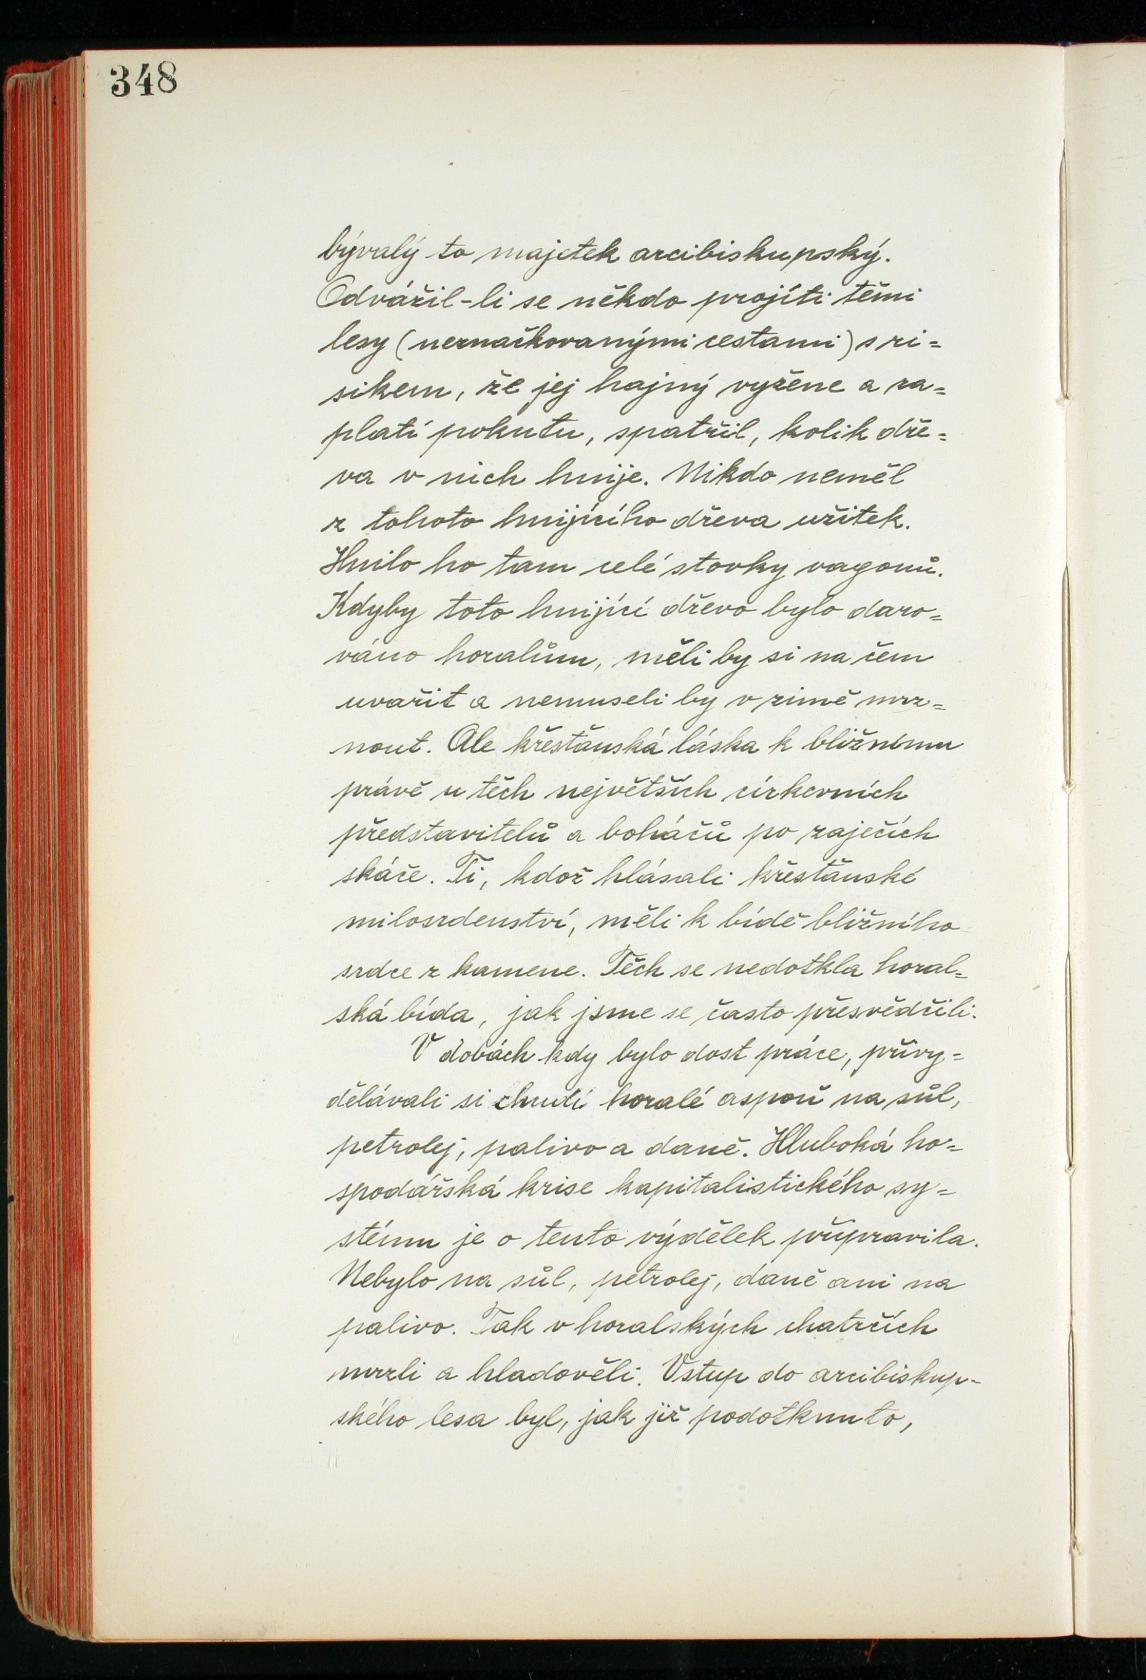 348
bývalý to majetek arcibiskupský.
Odvážil-li se někdo projíti těmi
lesy (neznačkovanými cestami) s ri=
sikem, že jej hajný vyžene a za=
platí pokutu, spatřil, kolik dře=
va v nich hnije. Nikdo neměl
z tohoto hnijícího dřeva užitek.
Hnilo ho tam celé stovky vagonů.
Kdyby toto hnijící dřevo bylo daro=
váno horalům, měli by si na čem
uvařit a nemuseli by v zimě mrz=
nout. Ale křesťanská láska k bližnímu
právě u těch největších církevních
představitelů a boháčů po zaječích
skáče. Ti, kdož hlásali křesťanské
milosrdenství, měli k bídě bližního
srdce z kamene. Těch se nedotkla horal=
ská bída, jak jsme se často přesvědčili.
V dobách kdy bylo dost práce, přivy=
dělávali si chudí horalé aspoň na sůl,
petrolej, palivo a daně. Hluboká ho=
spodářská krise kapitalistického sy=
stému je o tento výdělek připravila.
Nebylo na sůl, petrolej, daně ani na
palivo. Tak v horalských chatrčích
mrzli a hladověli. Vstup do arcibiskup-
ského lesa byl, jak již podotknuto,